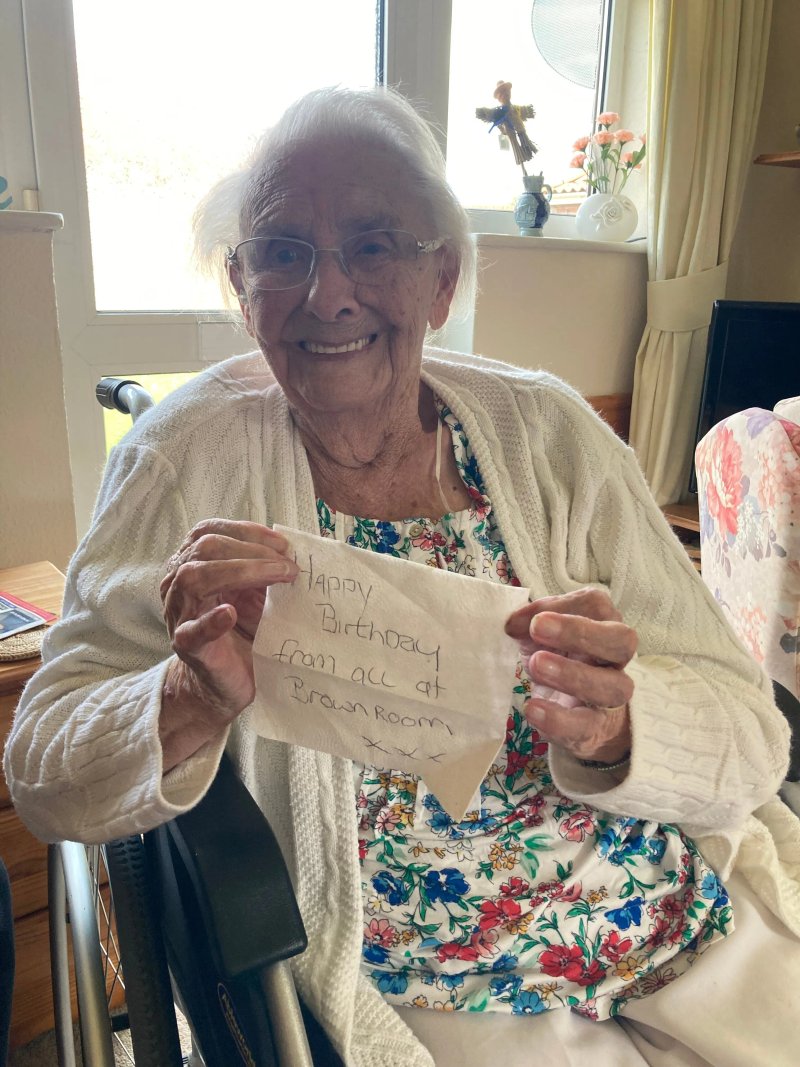 Happy
Birthday
from all at
Brown Room
x x x